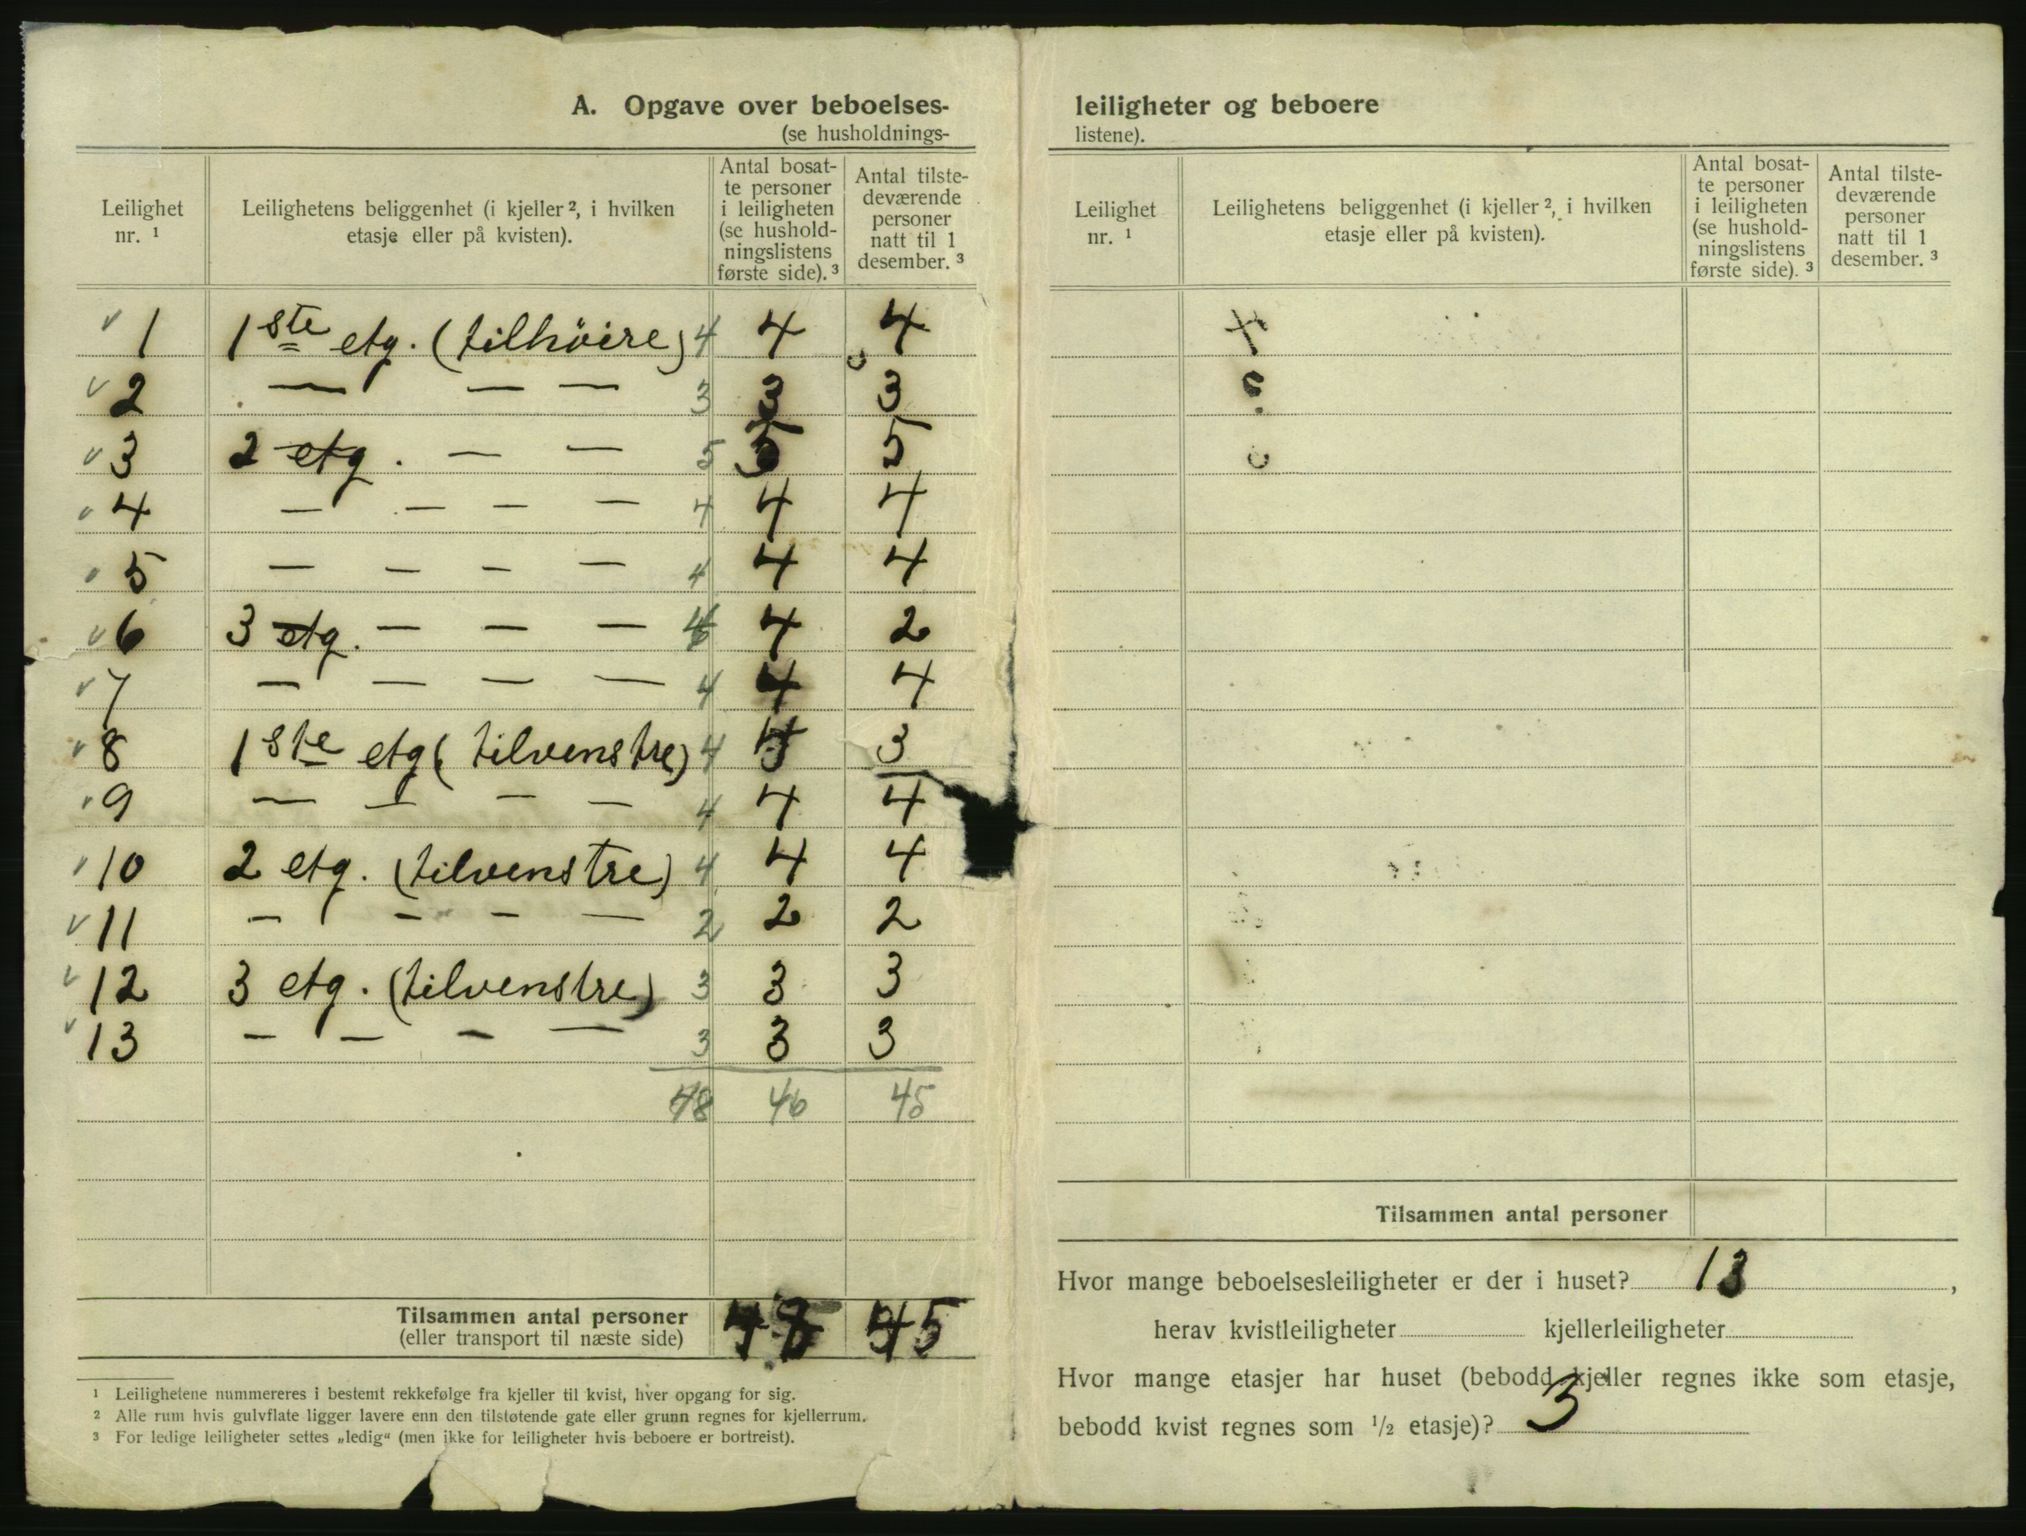 A. Opgave over beboelses-
(se husholdnings-
Leilighet nr. ¹
Leilighetens beliggenhet (i kjeller ², i hvilken etasje eller på kvisten).
Antal bosat-
te personer
i leiligheten
(se hushold-
ningslistens
første side). ³
Antal tilste-
deværende
personer
natt til 1
desember. ³
1 1ste etg. (tilhöire) 4 4 4
2 — — — 3 3 3
3 2 etg. — — 5 5 5
4 — — — — 4 4 4
5 — — — — 4 4 4
6 3 etg. — — — 4 2
7 — — — — 4 4 4
8 1ste etg (tilvenstre) 4 3
9 — — — — 4 4 4
10 2 etg. (tilvenstre) 4 4 4
11 — — — — 2 2 2
12 3 etg. (tilvenstre) 3 3 3
13 — — — — 3 3 3
48 46 45
Tilsammen antal personer 48 45
(eller transport til næste side)
¹ Leilighetene nummereres i bestemt rekkefølge fra kjeller til kvist, hver opgang for sig.
² Alle rum hvis gulvflate ligger lavere enn den tilstøtende gate eller grunn regnes for kjellerrum.
³ For ledige leiligheter settes „ledig“ (men ikke for leiligheter hvis beboere er bortreist).
leiligheter og beboere
listene).
Leilighet nr. ¹
Leilighetens beliggenhet (i kjeller ², i hvilken etasje eller på kvisten).
Antal bosat-
te personer
i leiligheten
(se hushold-
ningslistens
første side). ³
Antal tilste-
deværende
personer
natt til 1
desember. ³
Tilsammen antal personer
Hvor mange beboelsesleiligheter er der i huset? 13,
herav kvistleiligheter kjellerleiligheter
Hvor mange etasjer har huset (bebodd kjeller regnes ikke som etasje,
bebodd kvist regnes som ¹/₂ etasje)? 3